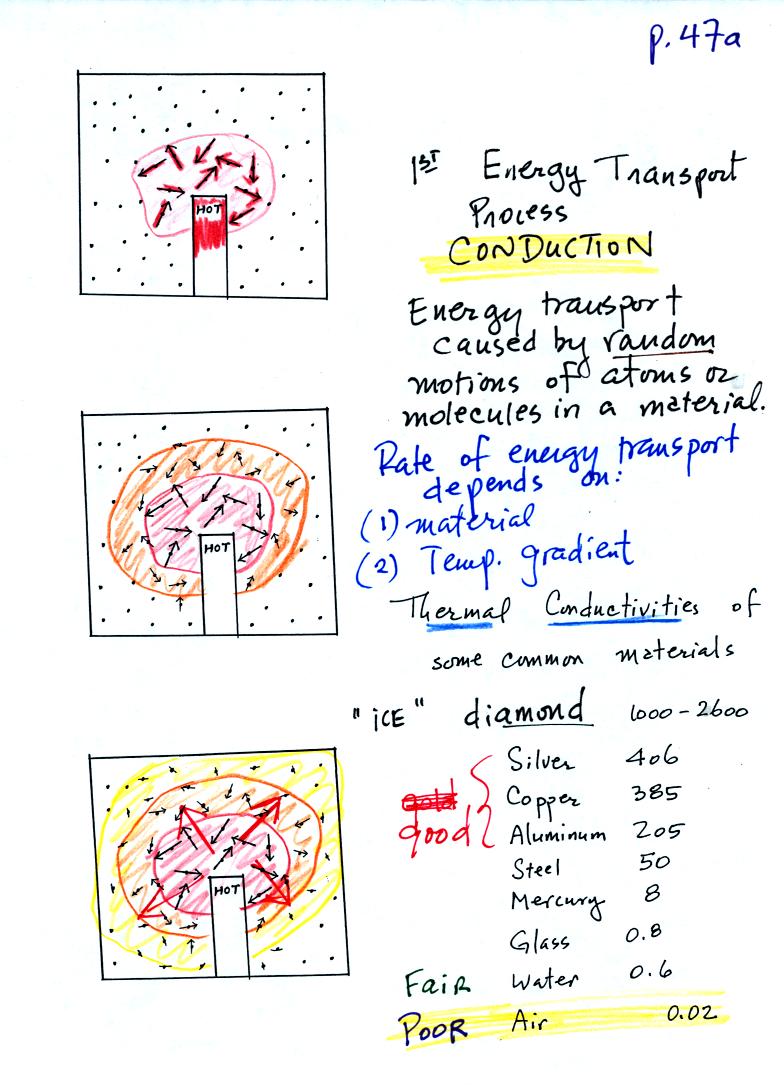 p. 47a
1ST Energy Transport
Process
CONDUCTION
HOT
Energy transport
caused by random
motions of atoms or
molecules in a material.
Rate of energy transport
depends on:
(1) material
(2) Temp. gradient
HOT
Thermal Conductivities of
some common materials
"ICE" diamond 1000-2600
Silver 406
gold Copper 385
good Aluminum 205
Steel 50
HOT
Mercury 8
Glass 0.8
FaiR Water 0.6
POOR Air 0.02